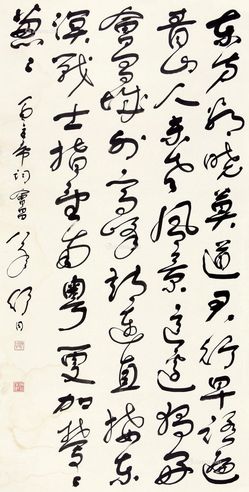 东方欲晓莫道君行早踏遍
青山人未老风景这边独好
會昌城外高峰颠连直接东
溟战士指看南粤更加鬱々
葱々
毛主席词會昌
舒同